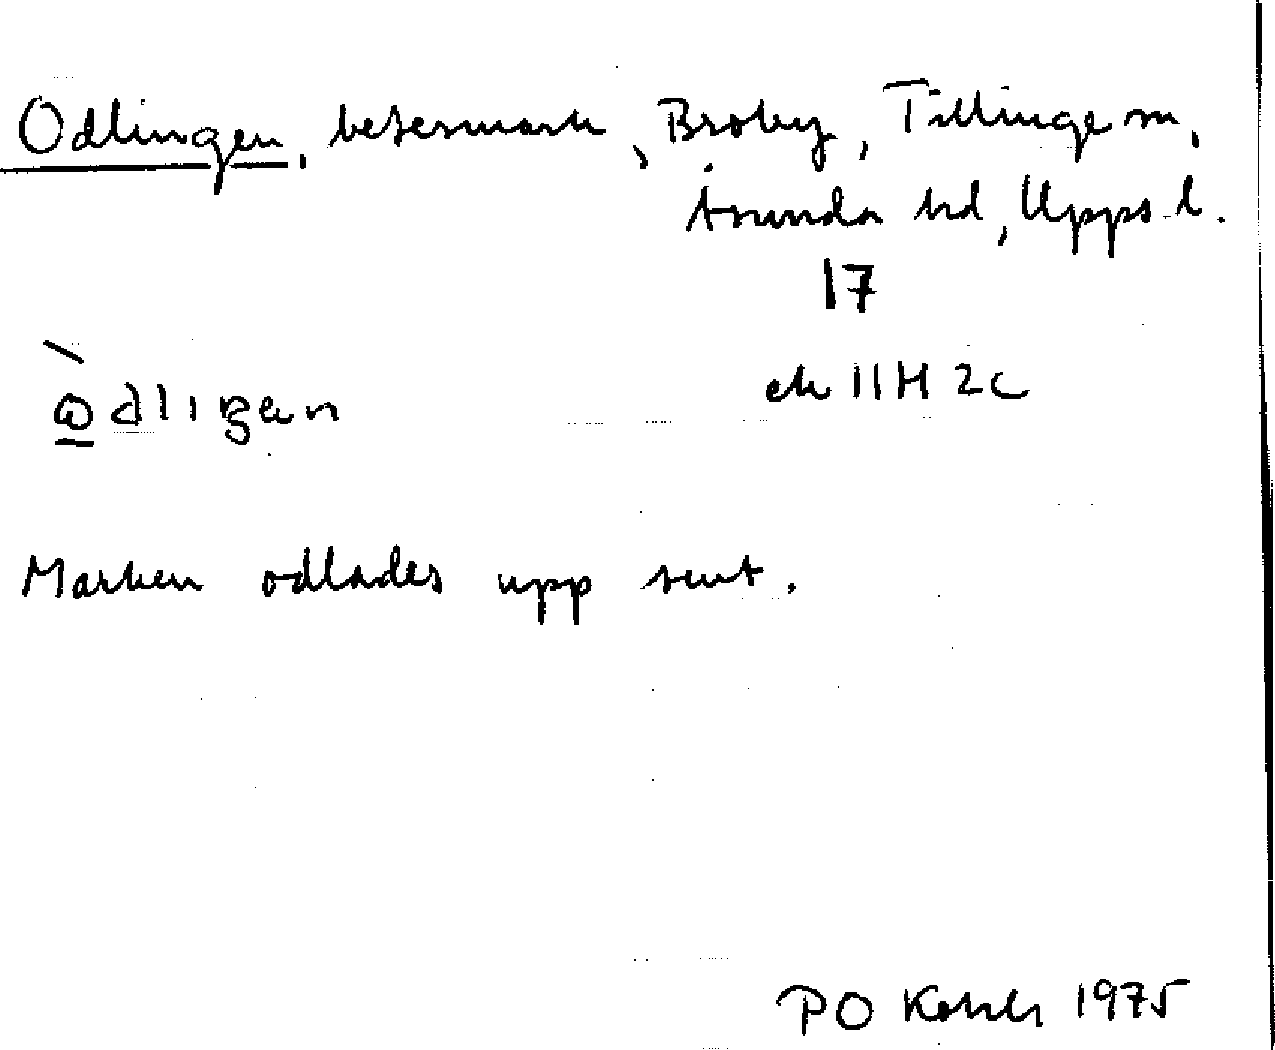 Odlingen, betesmark, Broby, Tillinge sn,
Åsunda hd, Upps. l.
17
ek 11H 2c
Marken odlades upp sent.
PO 1975